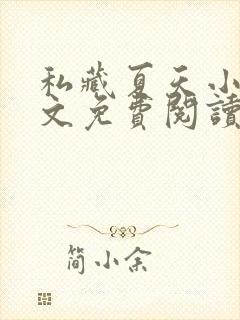 私藏夏天小
文免費閱讀
简小余